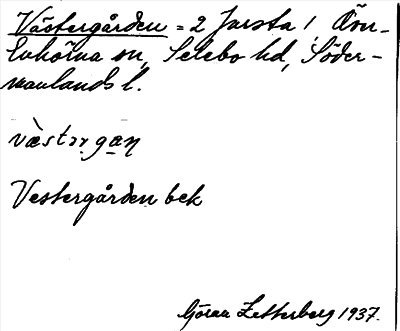 Västergården = 2 Jursta 1, Över-
enhörna sn, Selebo hd, Söder-
manlands l.
væ̀stərgan
Vestergården bek
Göran Zetterberg 1937.